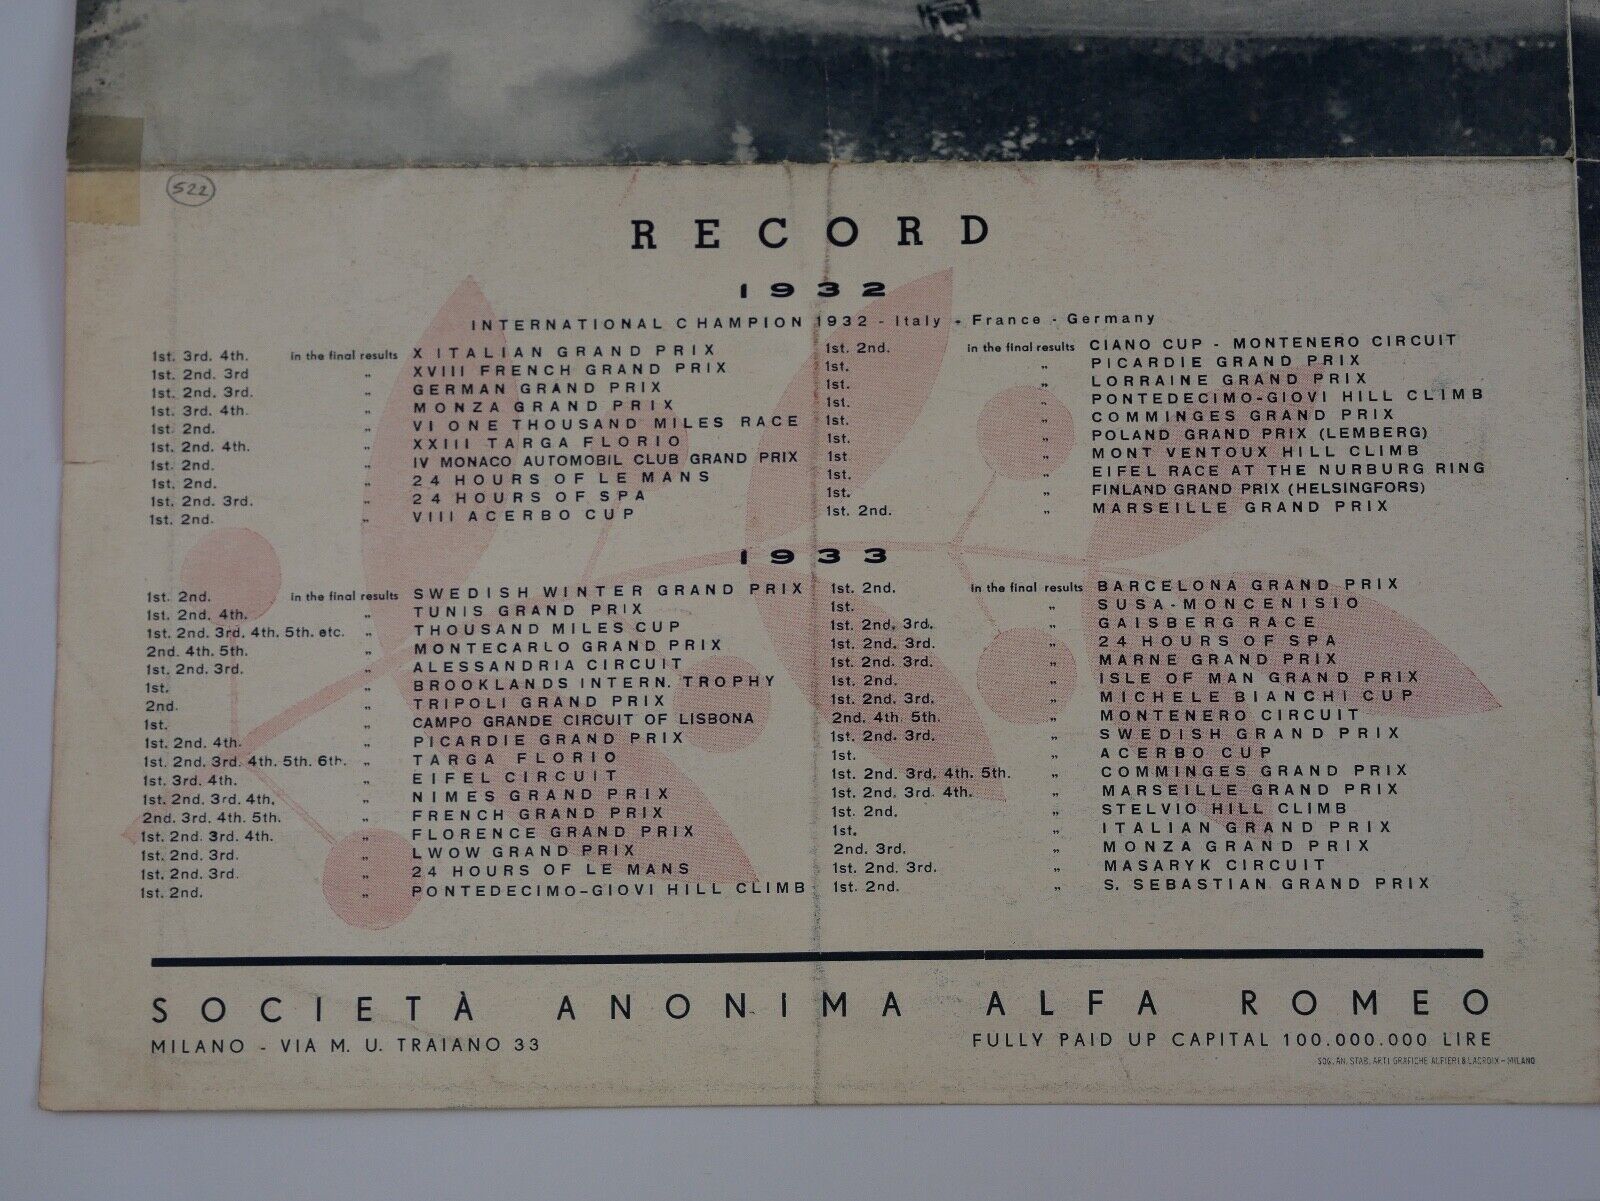 522
RECORD
1932
INTERNATIONAL CHAMPION 1932 - Italy - France - Germany
1st. 3rd. 4th. in the final results X ITALIAN GRAND PRIX
1st. 2nd. 3rd „ XVIII FRENCH GRAND PRIX
1st. 2nd. 3rd. „ GERMAN GRAND PRIX
1st. 3rd. 4th. „ MONZA GRAND PRIX
1st. 2nd. „ VI ONE THOUSAND MILES RACE
1st. 2nd. 4th. „ XXIII TARGA FLORIO
1st. 2nd. „ IV MONACO AUTOMOBIL CLUB GRAND PRIX
1st. 2nd. „ 24 HOURS OF LE MANS
1st. 2nd. 3rd. „ 24 HOURS OF SPA
1st. 2nd. „ VIII ACERBO CUP
1st. 2nd. in the final results CIANO CUP - MONTENERO CIRCUIT
1st. „ PICARDIE GRAND PRIX
1st. „ LORRAINE GRAND PRIX
1st. „ PONTEDECIMO-GIOVI HILL CLIMB
1st. „ COMMINGES GRAND PRIX
1st. „ POLAND GRAND PRIX (LEMBERG)
1st „ MONT VENTOUX HILL CLIMB
1st. „ EIFEL RACE AT THE NURBURG RING
1st. „ FINLAND GRAND PRIX (HELSINGFORS)
1st. 2nd. „ MARSEILLE GRAND PRIX
1933
1st. 2nd. in the final results SWEDISH WINTER GRAND PRIX
1st. 2nd. 4th. „ TUNIS GRAND PRIX
1st. 2nd. 3rd. 4th. 5th. etc. „ THOUSAND MILES CUP
2nd. 4th. 5th. „ MONTECARLO GRAND PRIX
1st. 2nd. 3rd. „ ALESSANDRIA CIRCUIT
1st. „ BROOKLANDS INTERN. TROPHY
2nd. „ TRIPOLI GRAND PRIX
1st. „ CAMPO GRANDE CIRCUIT OF LISBONA
1st. 2nd. 4th. „ PICARDIE GRAND PRIX
1st. 2nd. 3rd. 4th. 5th. 6th. „ TARGA FLORIO
1st. 3rd. 4th. „ EIFEL CIRCUIT
1st. 2nd. 3rd. 4th. „ NIMES GRAND PRIX
2nd. 3rd. 4th. 5th. „ FRENCH GRAND PRIX
1st. 2nd. 3rd. 4th. „ FLORENCE GRAND PRIX
1st. 2nd. 3rd. „ LWOW GRAND PRIX
1st. 2nd. 3rd. „ 24 HOURS OF LE MANS
1st. 2nd. „ PONTEDECIMO-GIOVI HILL CLIMB
1st. 2nd. in the final results BARCELONA GRAND PRIX
1st. „ SUSA-MONCENISIO
1st. 2nd. 3rd. „ GAISBERG RACE
1st. 2nd. 3rd. „ 24 HOURS OF SPA
1st. 2nd. 3rd. „ MARNE GRAND PRIX
1st. 2nd. „ ISLE OF MAN GRAND PRIX
1st. 2nd. 3rd. „ MICHELE BIANCHI CUP
2nd. 4th. 5th. „ MONTENERO CIRCUIT
1st. 2nd. 3rd. „ SWEDISH GRAND PRIX
1st. „ ACERBO CUP
1st. 2nd. 3rd. 4th. 5th. „ COMMINGES GRAND PRIX
1st. 2nd. 3rd. 4th. „ MARSEILLE GRAND PRIX
1st. 2nd. „ STELVIO HILL CLIMB
1st. „ ITALIAN GRAND PRIX
2nd. 3rd. „ MONZA GRAND PRIX
1st. 2nd. 3rd. „ MASARYK CIRCUIT
1st. 2nd. „ S. SEBASTIAN GRAND PRIX
SOCIETÀ ANONIMA ALFA ROMEO
MILANO - VIA M. U. TRAIANO 33 FULLY PAID UP CAPITAL 100.000.000 LIRE
SOC. AN. STAB. ARTI GRAFICHE ALFIERI & LACROIX - MILANO